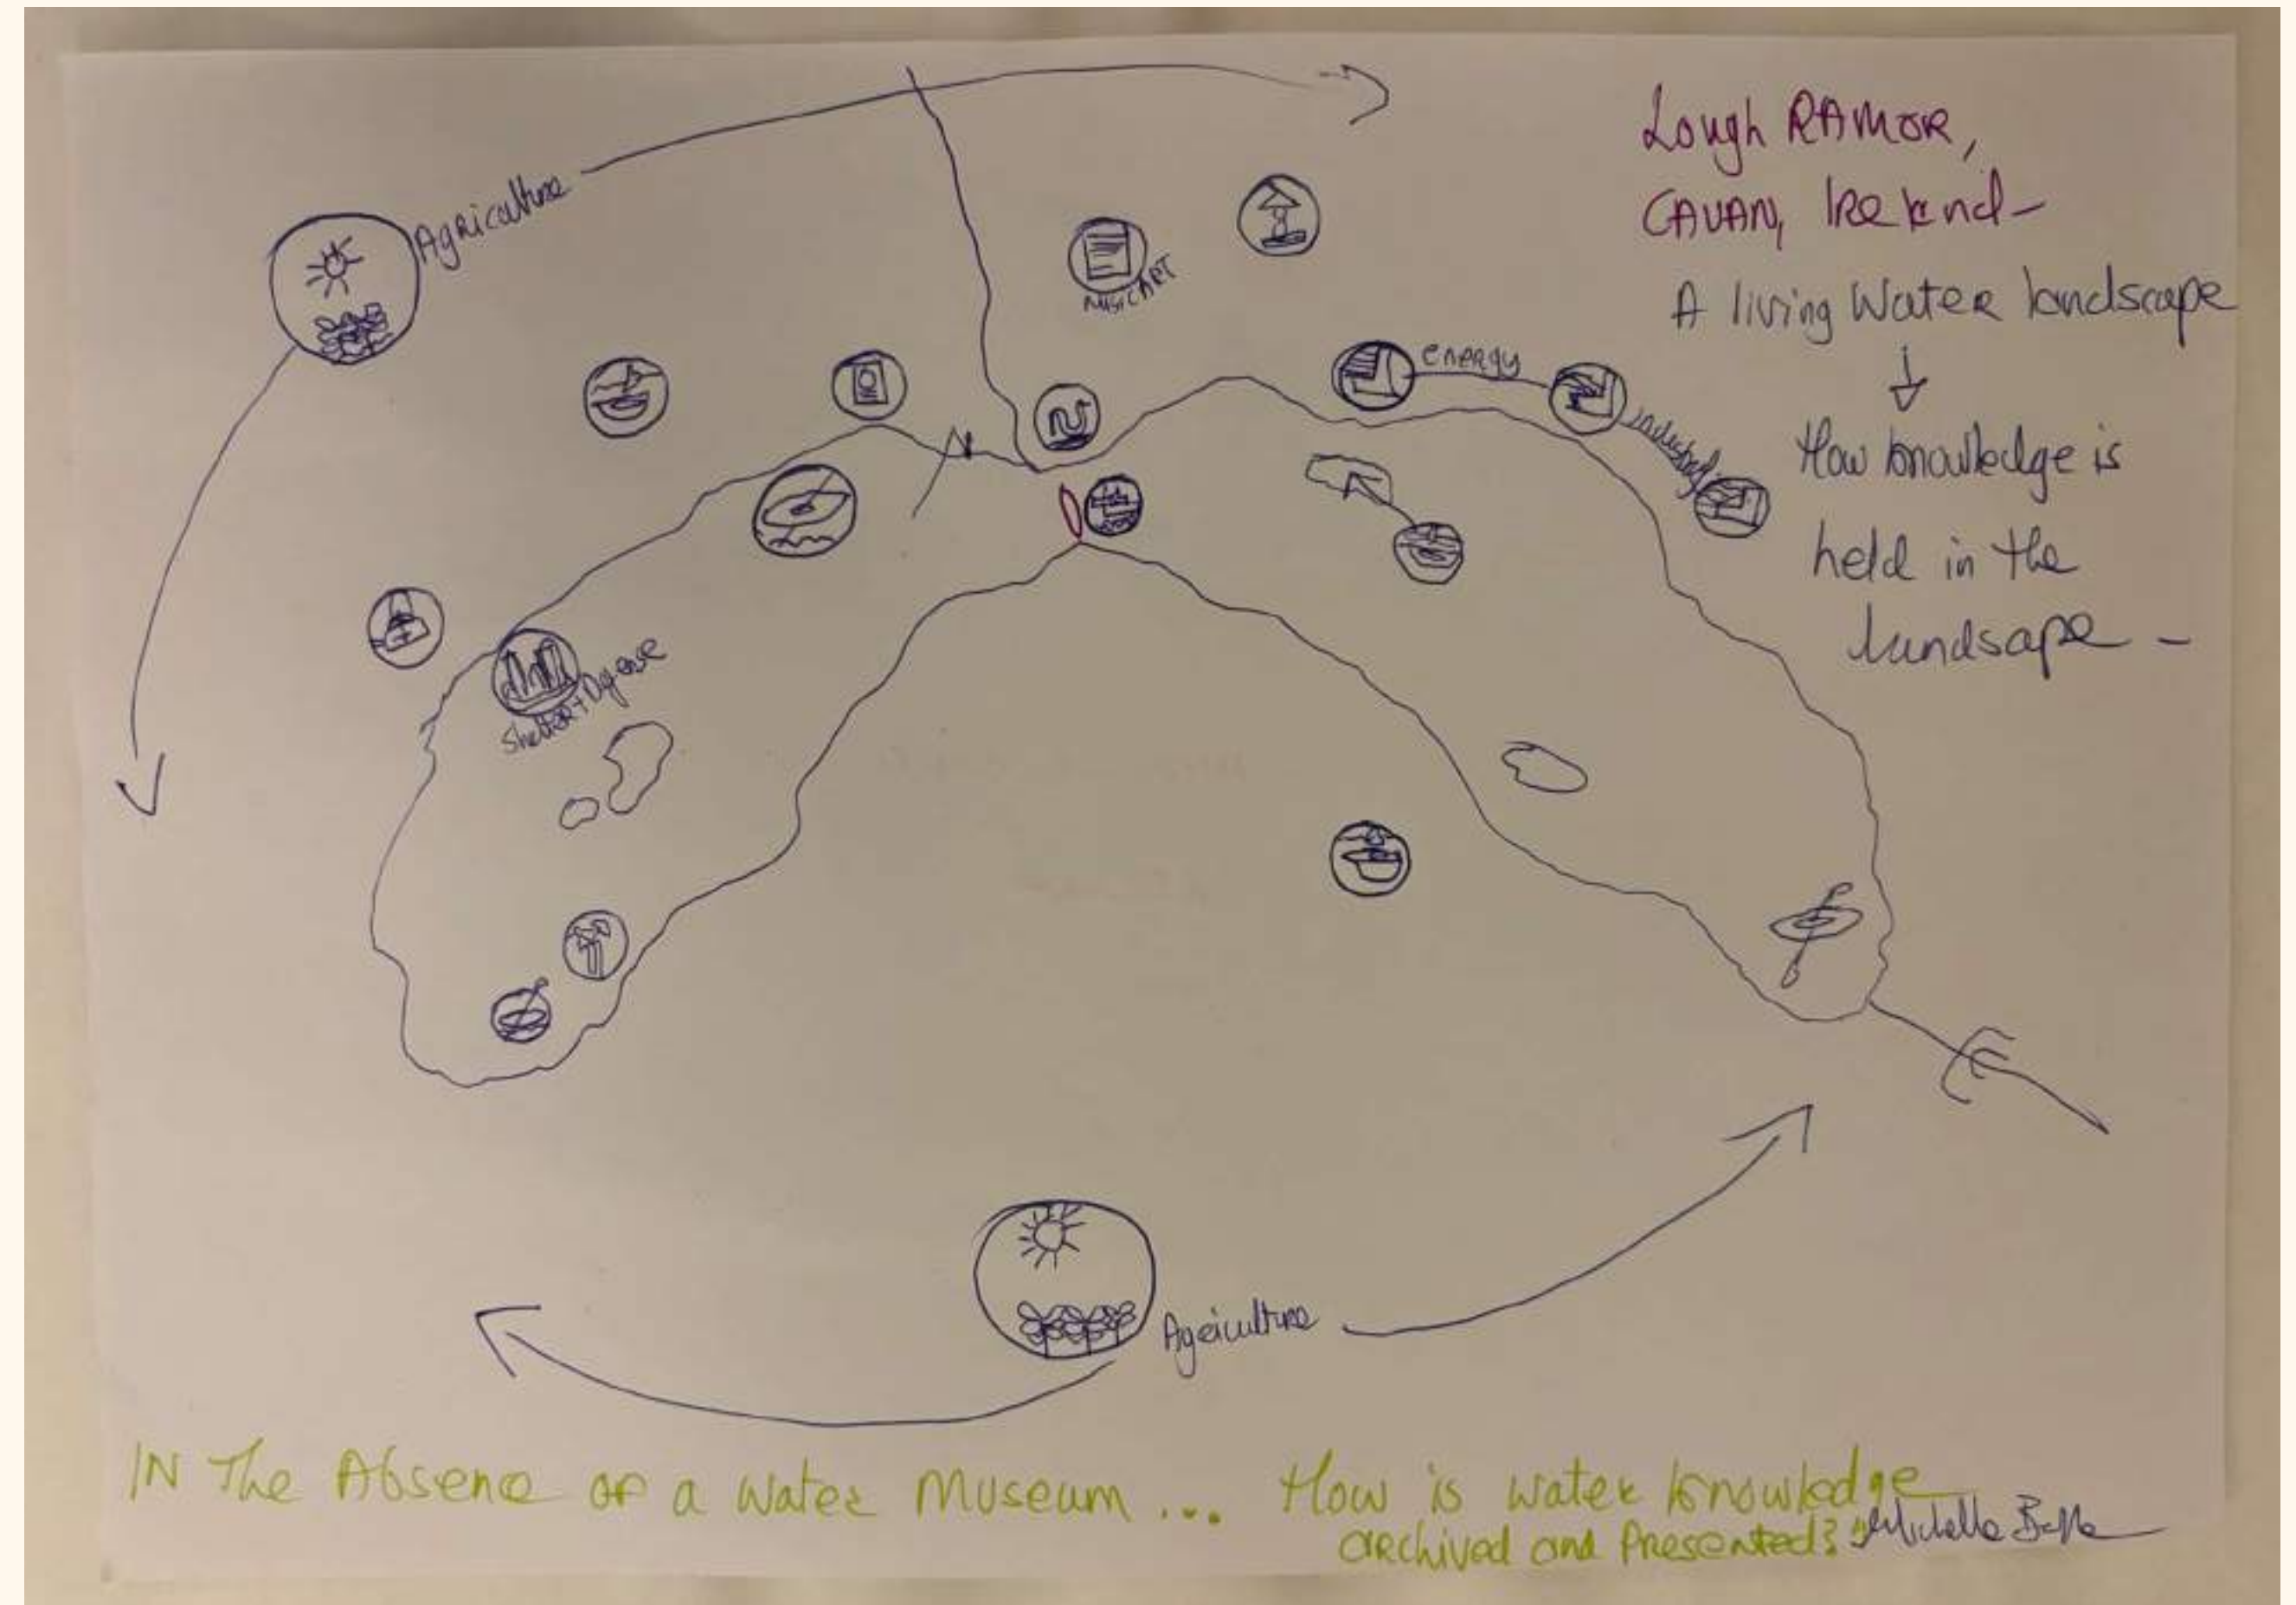 Lough RAMOR,
CAVAN, IReland -
A living Water landscape
How knowledge is
held in the
landsape -
Agriculture
MUSIC ART
energy
industry
N
Shelter + Defense
Agriculture
IN The Absence of a Water Museum ... How is water knowledge
archived and Presented?
Michelle